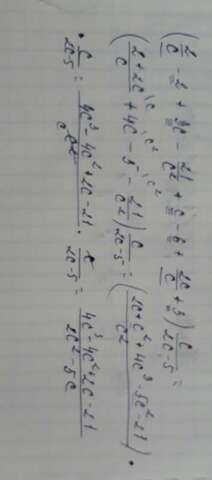 (2/c - 2 + 3c - 21/c² + c - 6 + 2c/c + 3) c/2c-5 =
(2+2c/c \c + 4c - 5 \c² - 21/c²) c/2c-5 = (2c+c²+4c³-5c²-21/c²) ·
· c/2c-5 = 4c³-4c²+2c-21/c² · c/2c-5 = 4c³-4c²+2c-21/2c²-5c